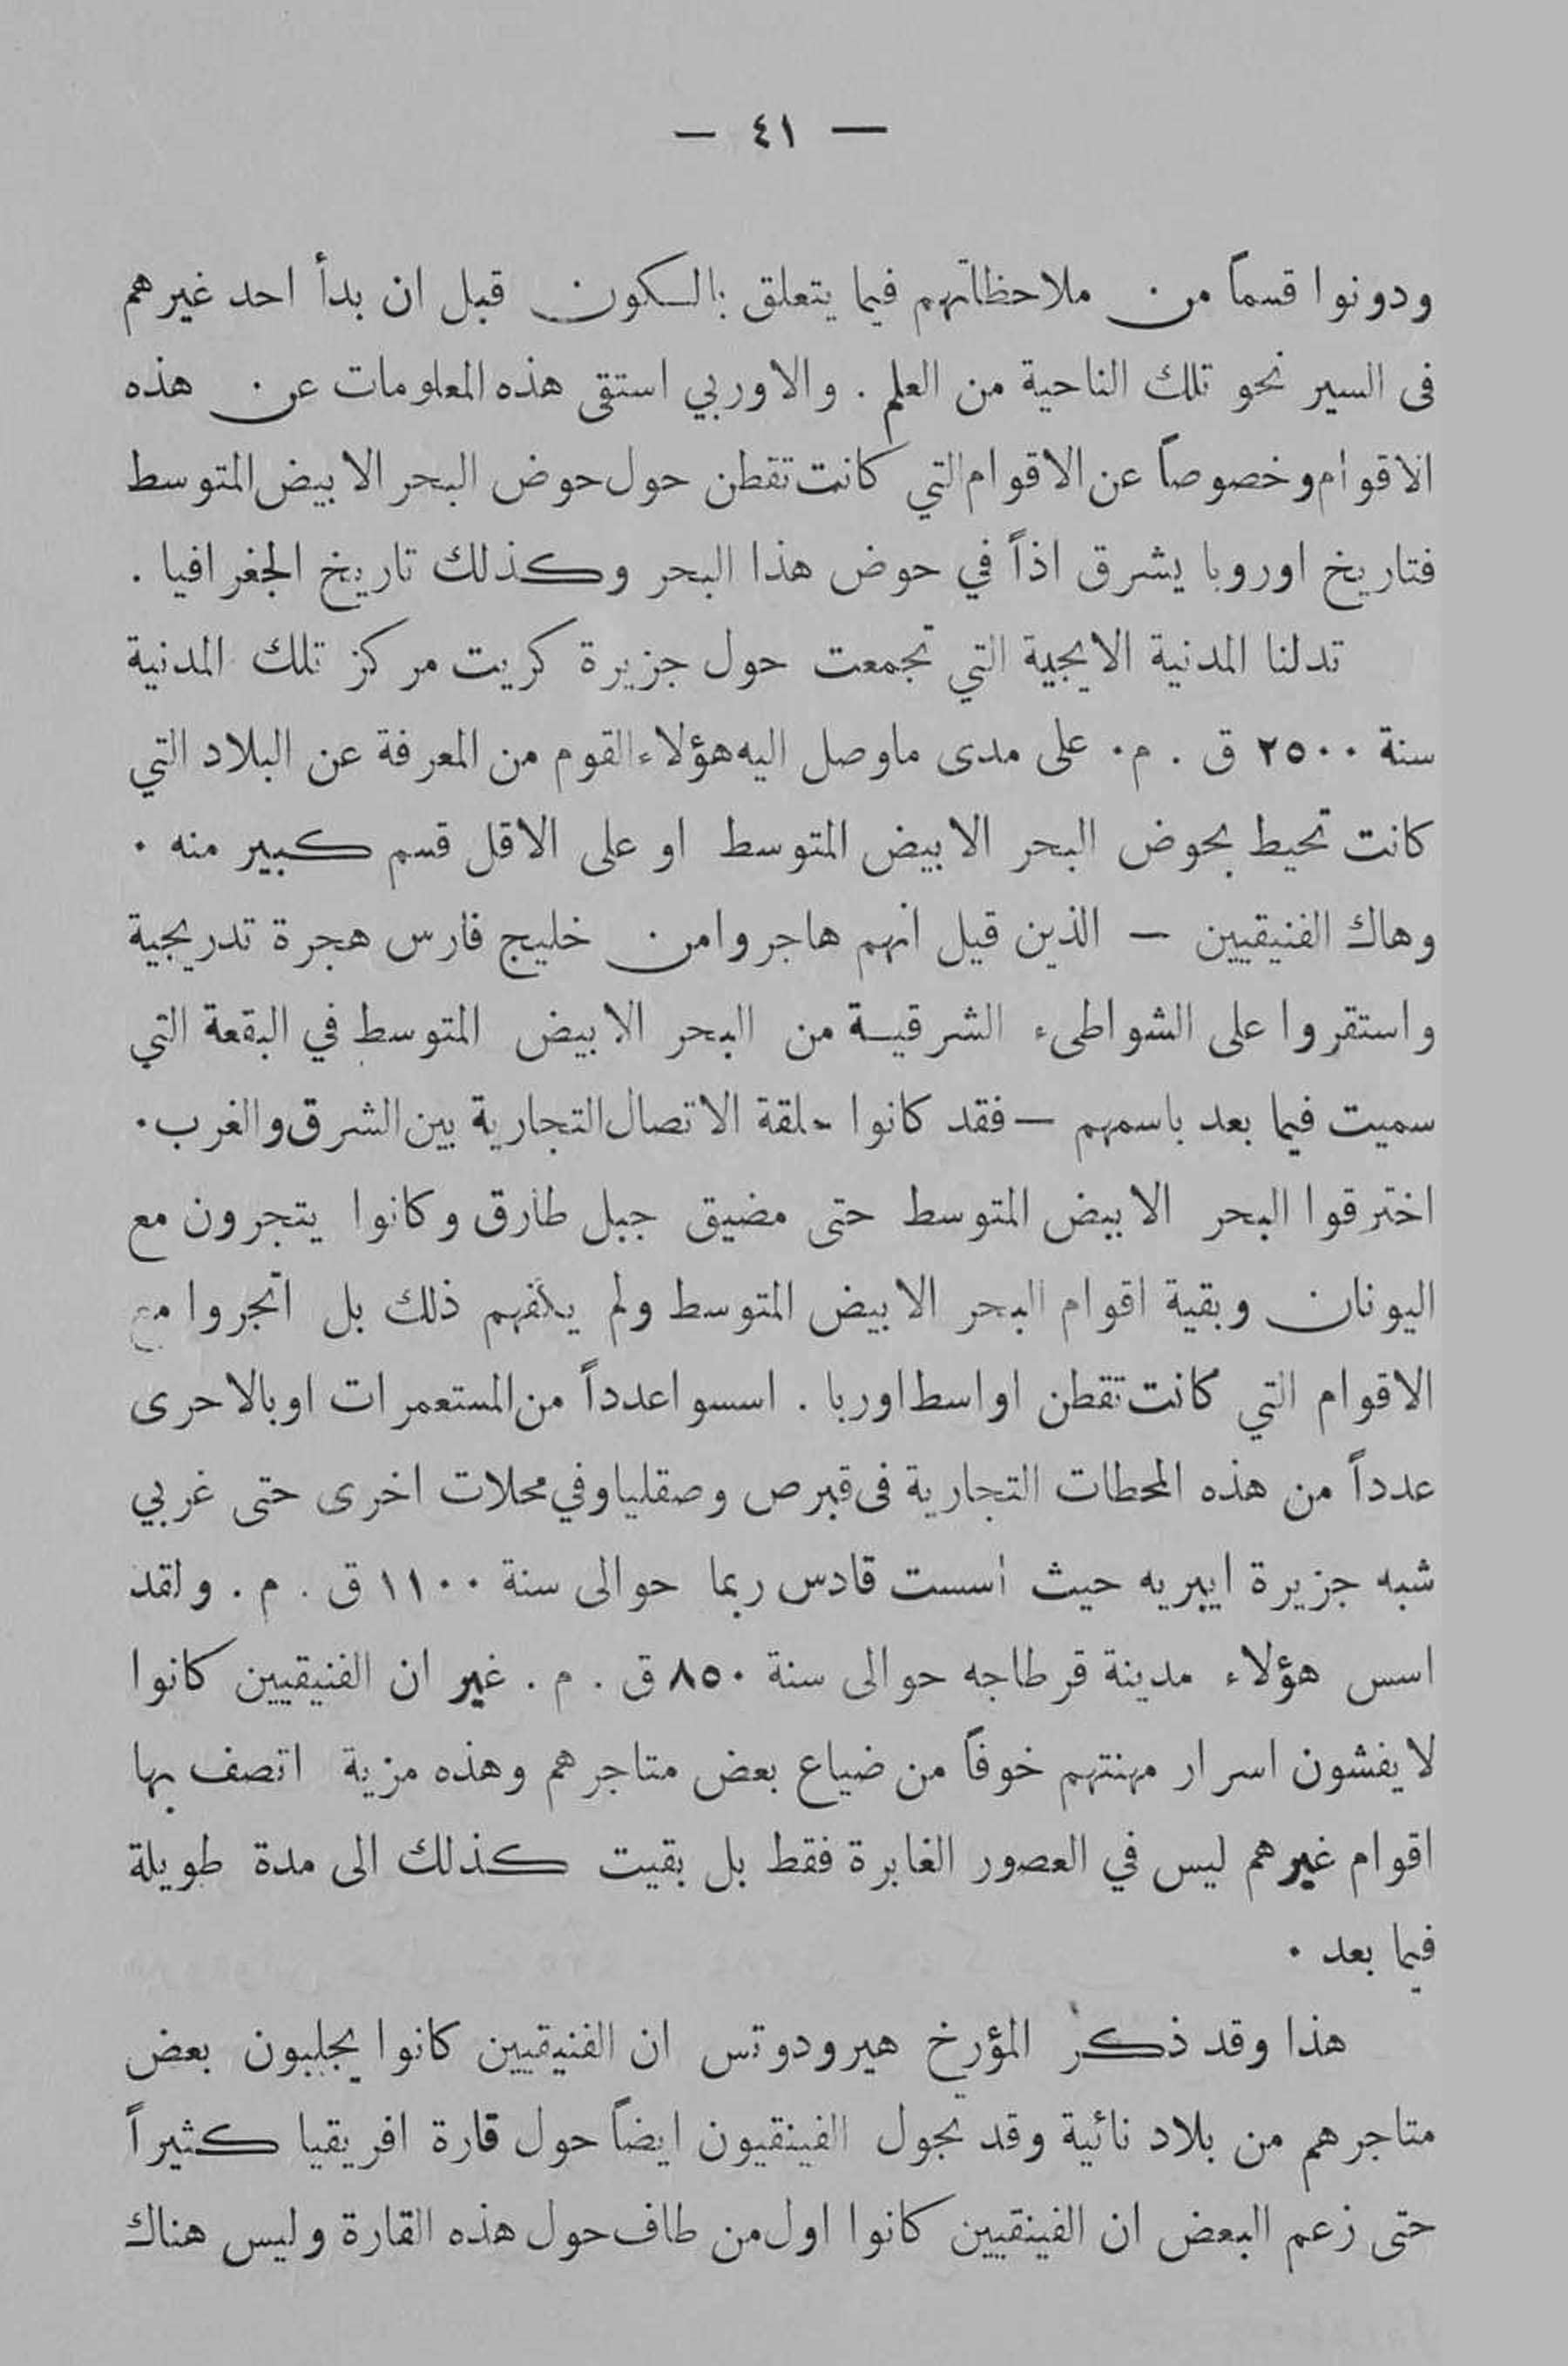 — ٤١ —
ودونوا قسماً من ملاحظاتهم فيما يتعلق بالكون قبل ان بدأ احد غيرهم
فى السير نحو تلك الناحية من العلم . والاوربي استقى هذه المعلومات عن هذه
الاقوام وخصوصاً عن الاقوام التي كانت تقطن حول حوض البحر الابيض المتوسط
فتاريخ اوروبا يشرق اذاً في حوض هذا البحر وكذلك تاريخ الجغرافيا .
تدلنا المدنية الايجية التي تجمعت حول جزيرة كريت مركز تلك المدنية
سنة ٢٥٠٠ ق . م . على مدى ماوصل اليه هؤلاء القوم من المعرفة عن البلاد التي
كانت تحيط بحوض البحر الابيض المتوسط او على الاقل قسم كبير منه .
وهاك الفنيقيين — الذين قيل انهم هاجروا من خليج فارس هجرة تدريجية
واستقروا على الشواطىء الشرقية من البحر الابيض المتوسط في البقعة التي
سميت فيما بعد باسمهم — فقد كانوا حلقة الاتصال التجارية بين الشرق والغرب .
اخترقوا البحر الابيض المتوسط حتى مضيق جبل طارق وكانوا يتجرون مع
اليونان وبقية اقوام البحر الابيض المتوسط ولم يكفهم ذلك بل اتجروا مع
الاقوام التي كانت تقطن اواسط اوربا . اسسوا عدداً من المستعمرات او بالاحرى
عدداً من هذه المحطات التجارية فى قبرص وصقليا وفي محلات اخرى حتى غربي
شبه جزيرة ايبريه حيث اسست قادس ربما حوالى سنة ١١٠٠ ق . م . ولقد
اسس هؤلاء مدينة قرطاجه حوالى سنة ٨٥٠ ق . م . غير ان الفنيقيين كانوا
لا يفشون اسرار مهنتهم خوفاً من ضياع بعض متاجرهم وهذه مزية اتصف بها
اقوام غيرهم ليس في العصور الغابرة فقط بل بقيت كذلك الى مدة طويلة
فيما بعد .
هذا وقد ذكر المؤرخ هيرودوتس ان الفنيقيين كانوا يجلبون بعض
متاجرهم من بلاد نائية وقد تجول الفينقيون ايضاً حول قارة افريقيا كثيراً
حتى زعم البعض ان الفينقيين كانوا اول من طاف حول هذه القارة وليس هناك